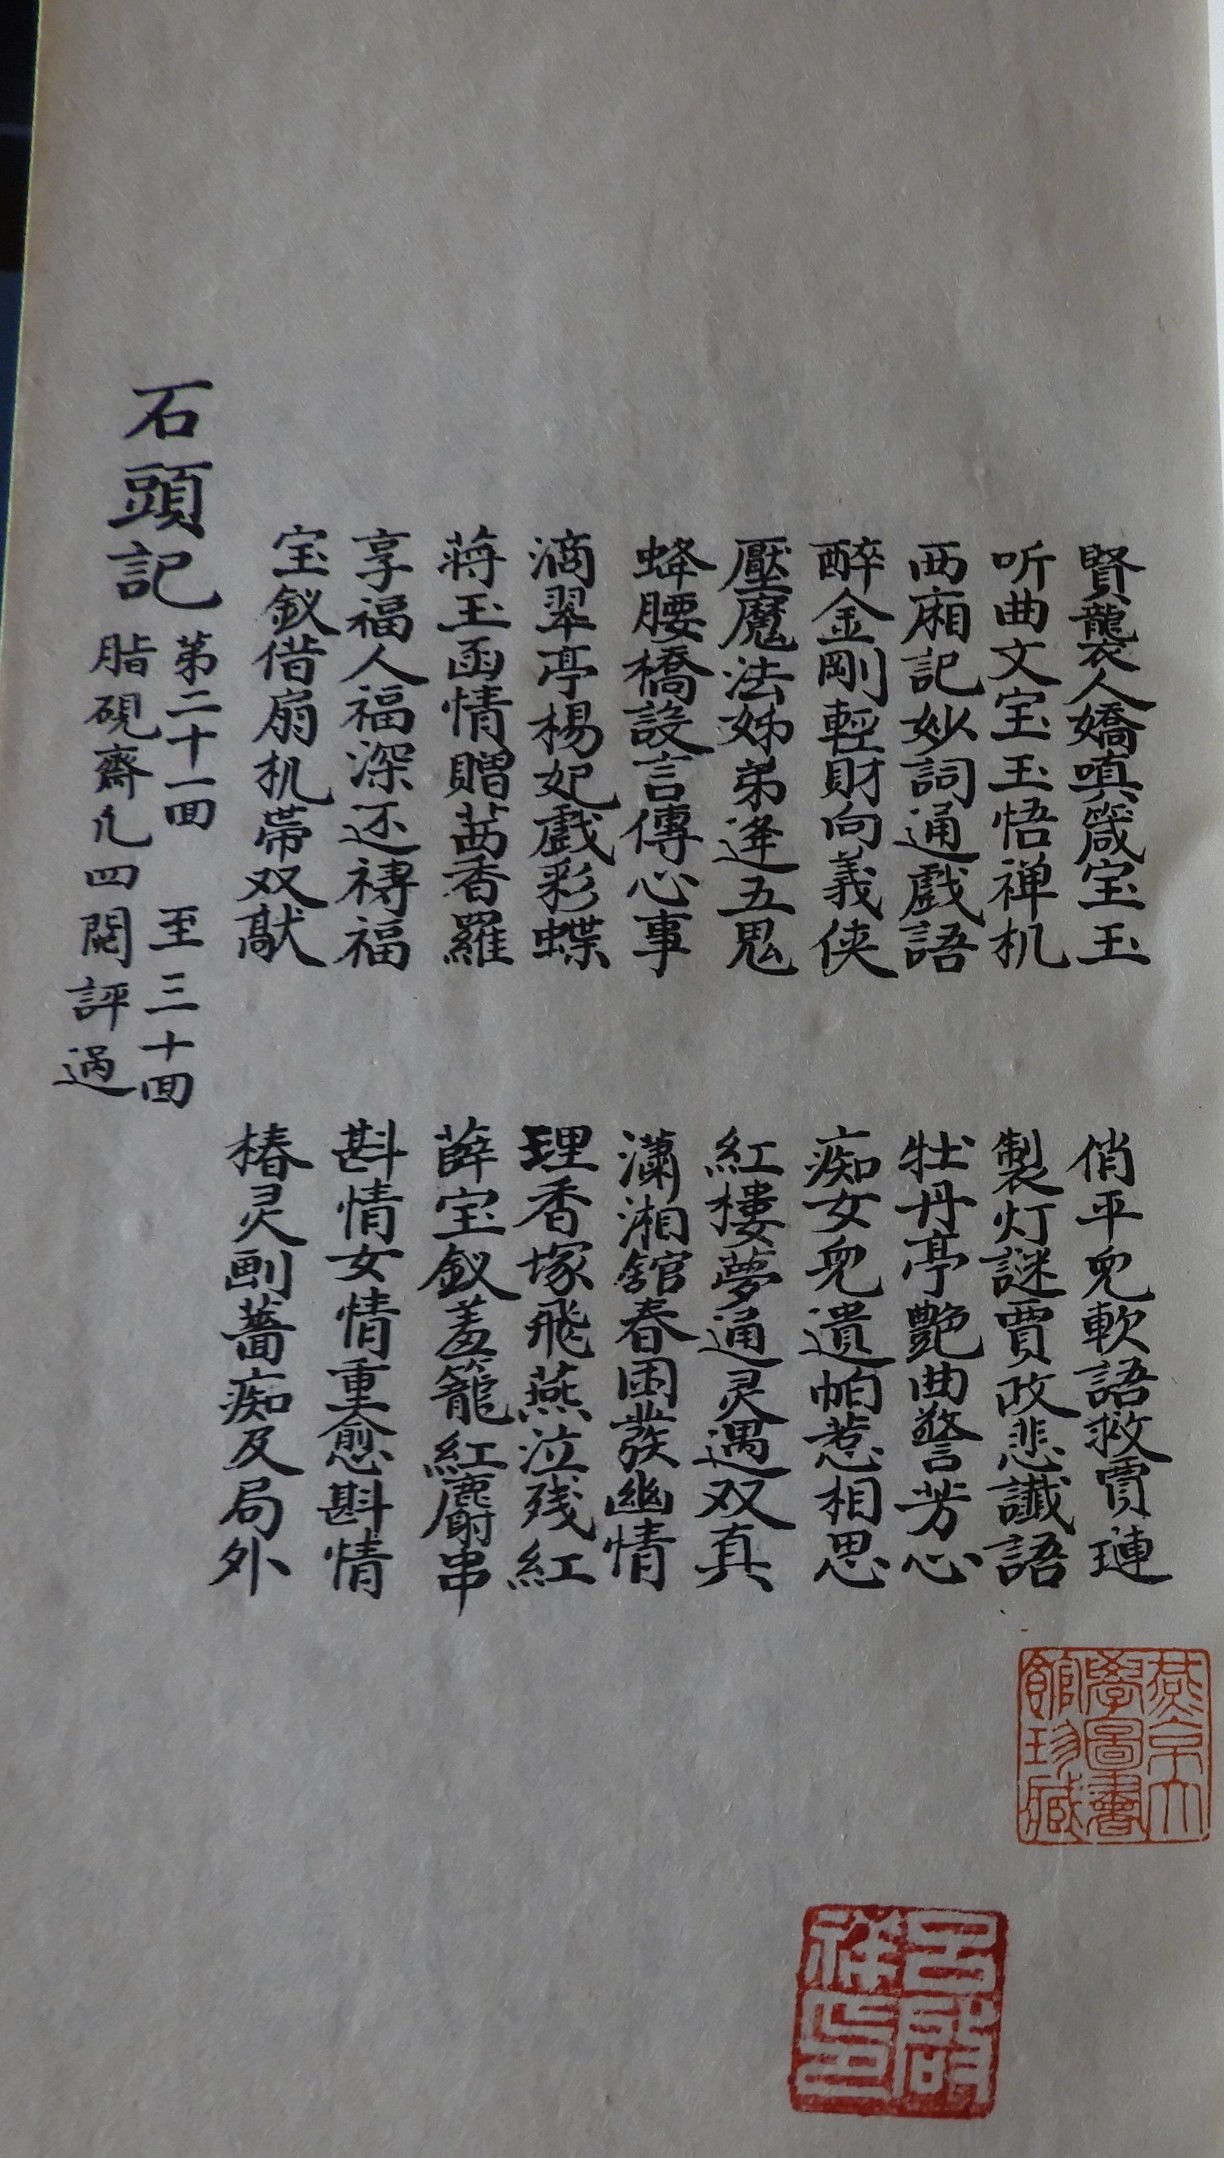 賢襲人嬌嗔箴宝玉　俏平兒軟語救賈璉
听曲文宝玉悟禅机　製灯謎賈政悲讖語
西廂記妙詞通戲語　牡丹亭艷曲警芳心
醉金剛輕財向義俠　痴女兒遺帕惹相思
壓魔法姊弟逢五鬼　紅樓夢通灵遇双真
蜂腰橋設言傳心事　瀟湘舘春困發幽情
滴翠亭楊妃戲彩蝶　埋香塚飛燕泣残紅
蒋玉函情贈茜香羅　薛宝釵羞籠紅麝串
享福人福深还禱福　斟情女情重愈斟情
宝釵借扇机帶双敲　椿灵画蔷痴及局外
石頭記
第二十一回　至三十回
脂硯齋凢四閱評過
燕京大
學圖書
館珍藏
呂啟
祥印